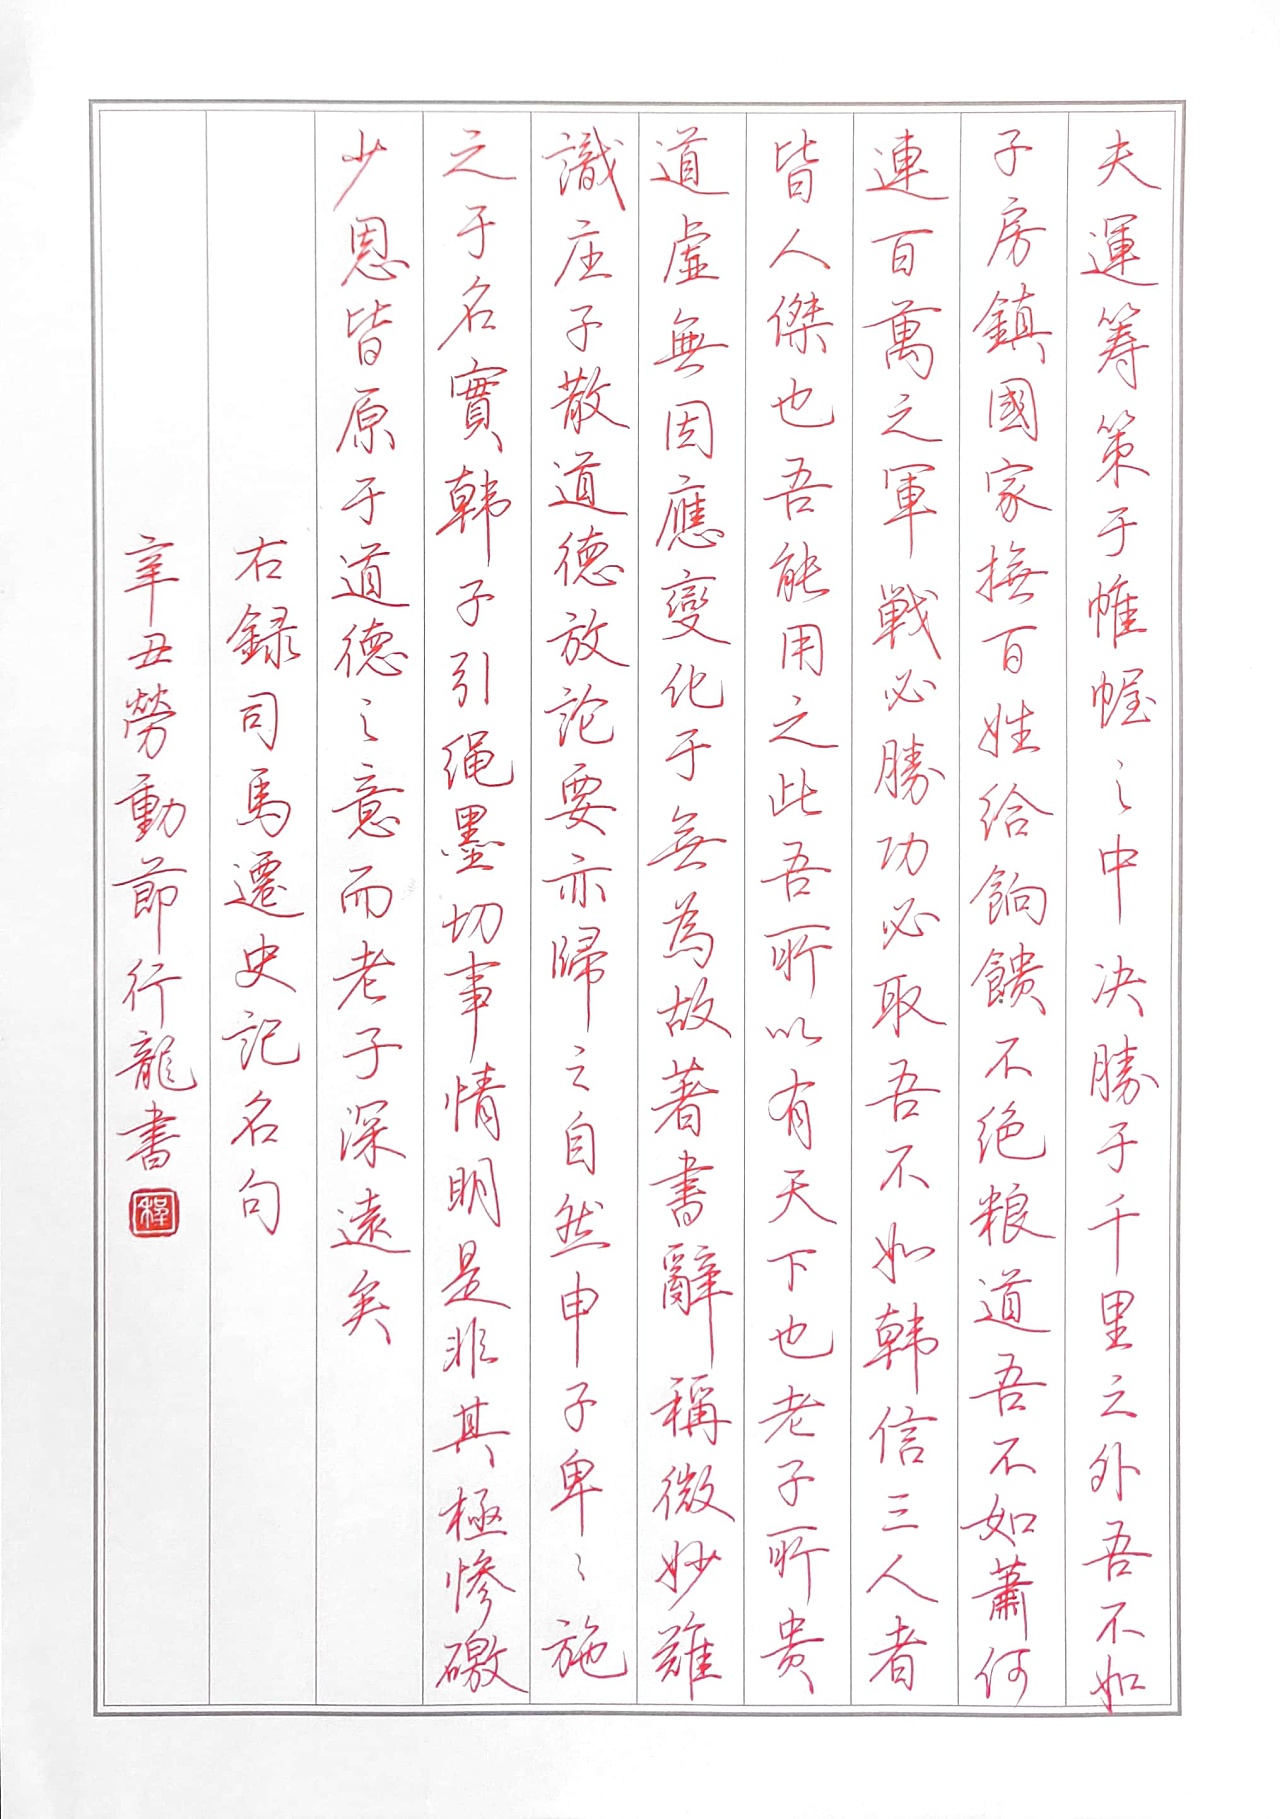 夫運筹策于帷幄之中决勝于千里之外吾不如
子房鎮國家撫百姓给餉馈不绝粮道吾不如蕭何
連百萬之軍戦必勝功必取吾不如韩信三人者
皆人傑也吾能用之此吾所以有天下也老子所贵
道虚無因應變化于無為故著書辭稱微妙難
識庄子散道德放論要亦歸之自然申子卑〻施
之于名實韩子引绳墨切事情明是非其極惨礉
少恩皆原于道德之意而老子深遠矣
右録司馬遷史記名句
辛丑勞動節行龍書
釋